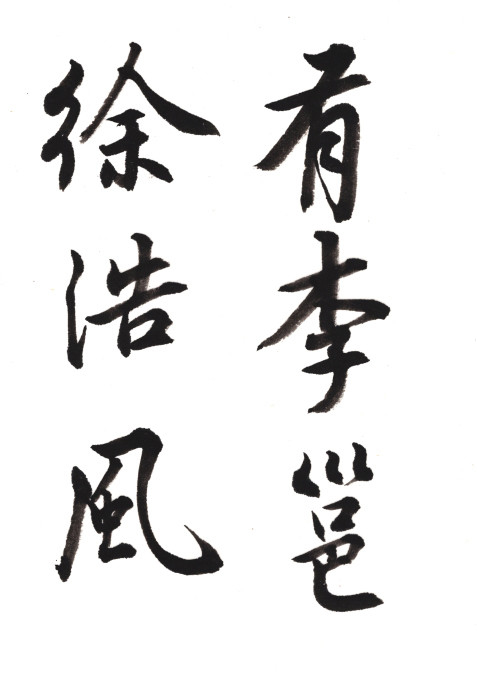 有李邕
徐浩風